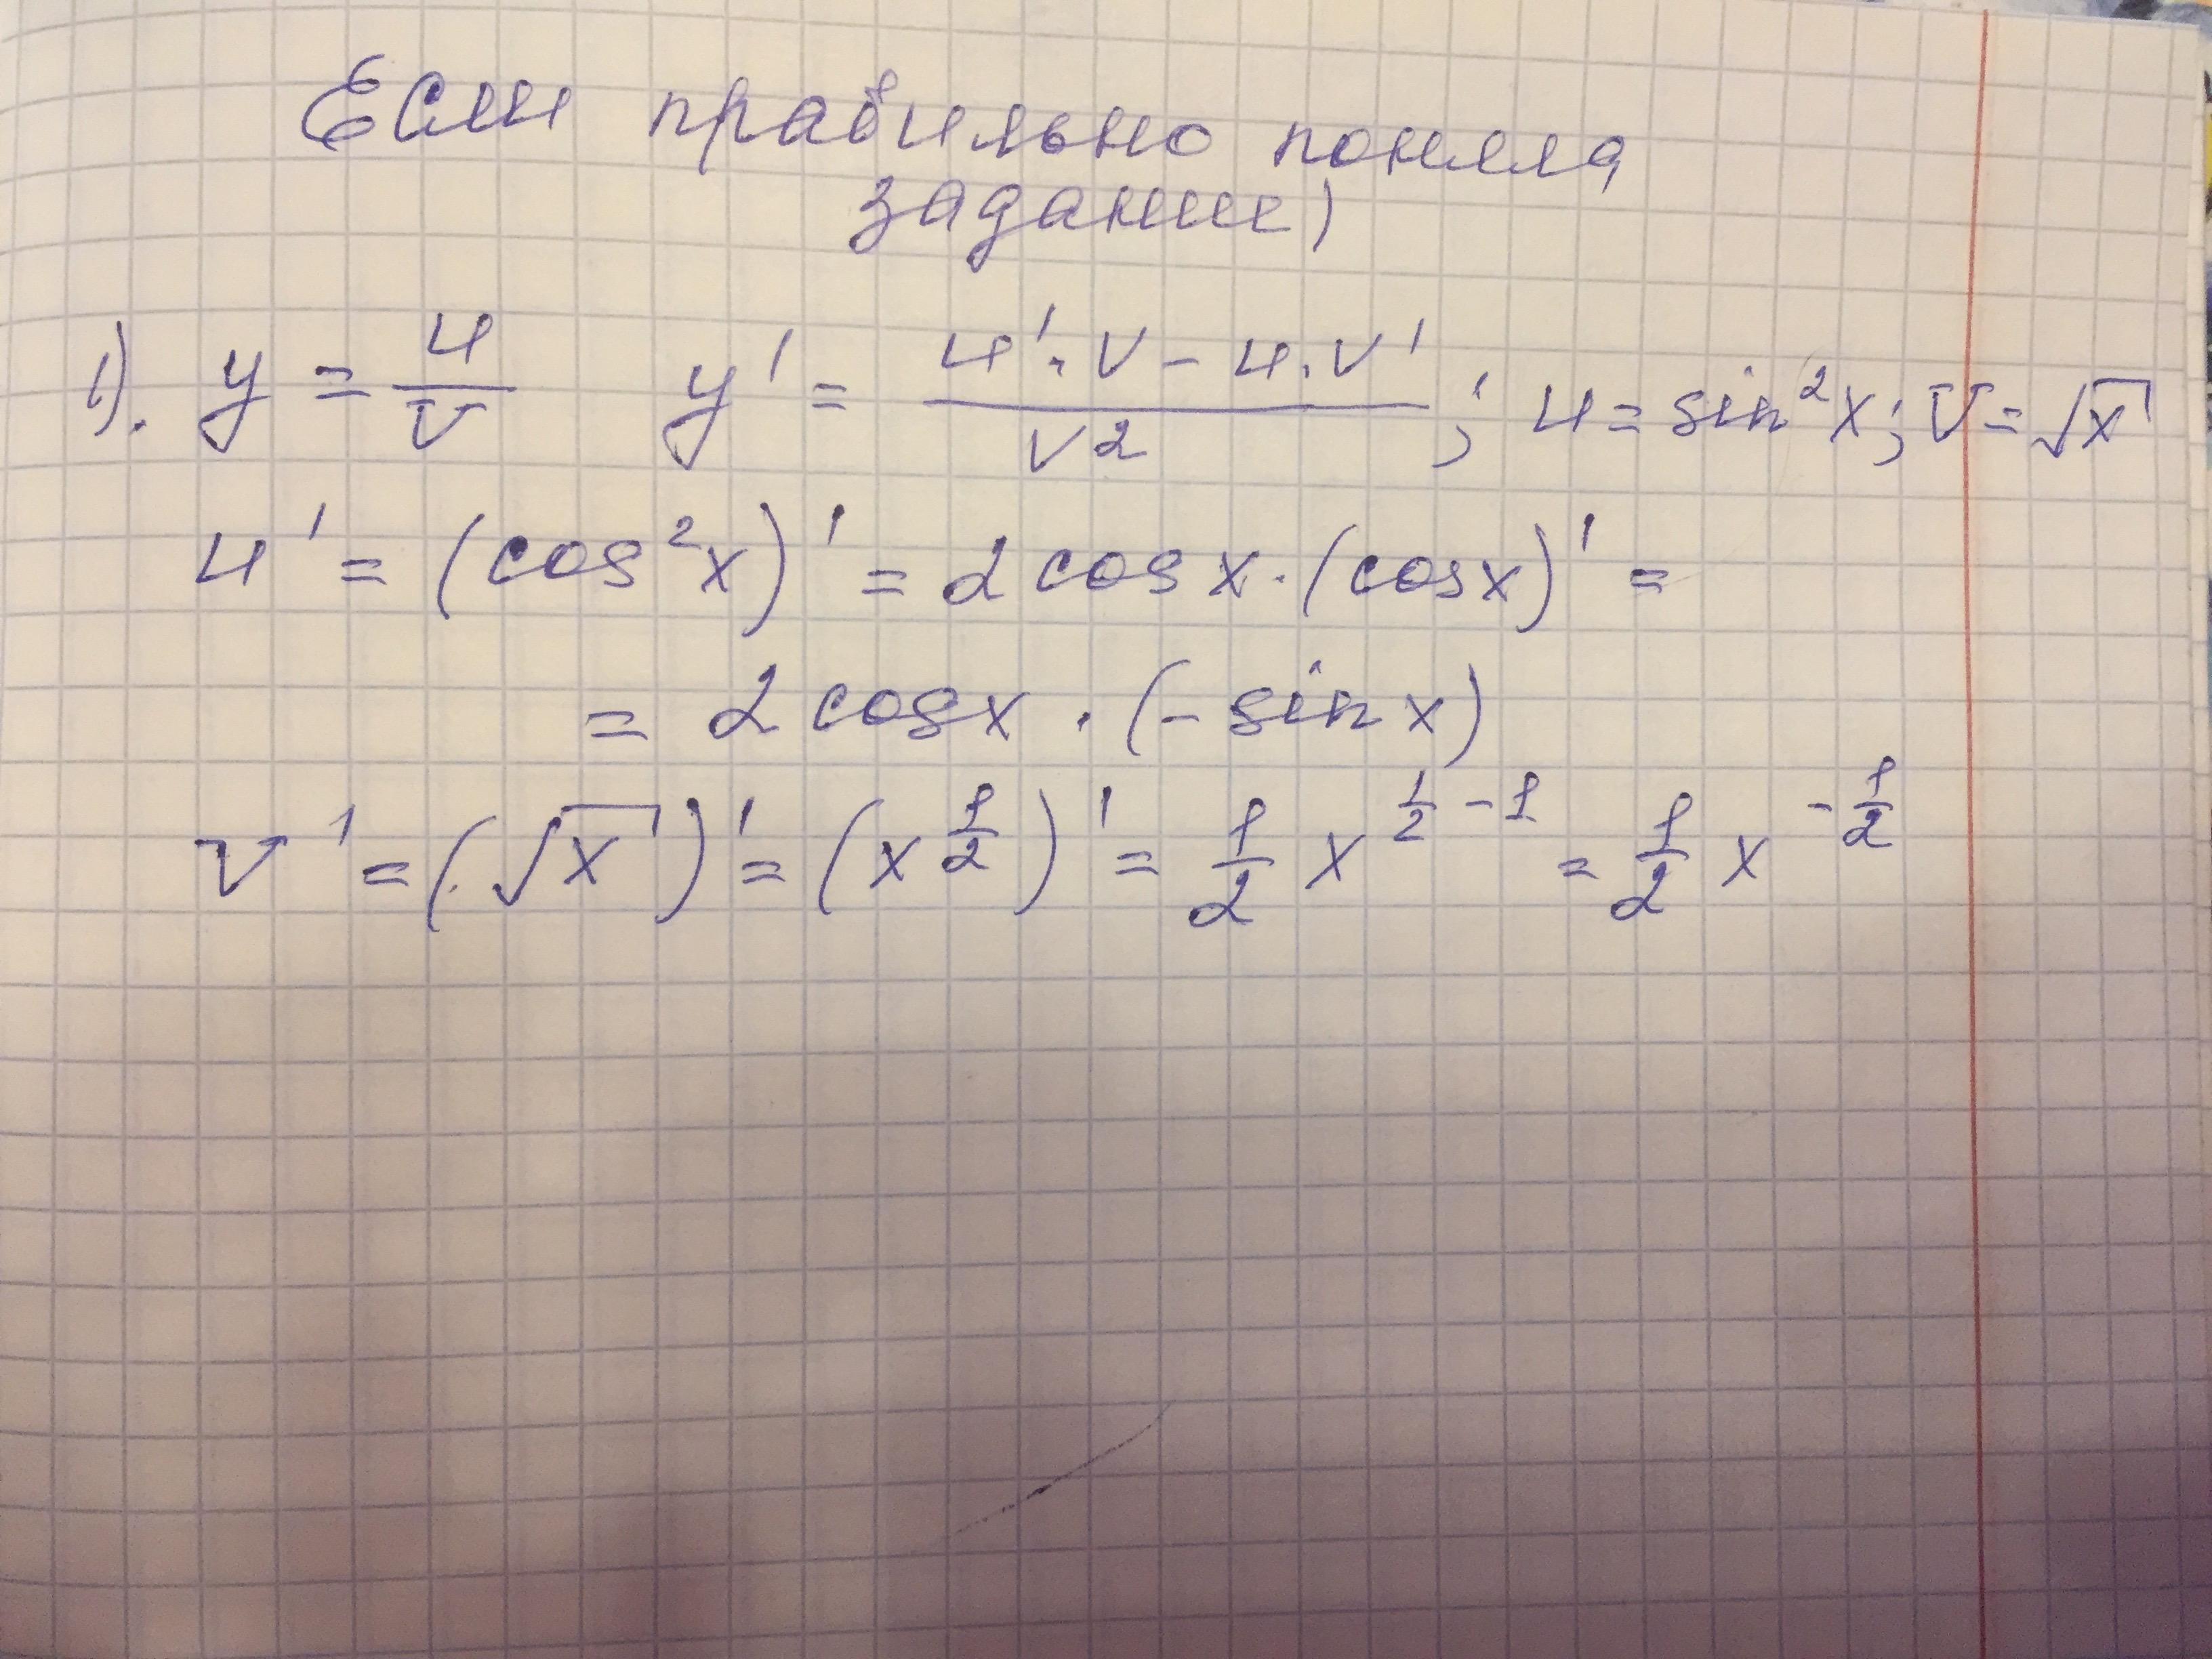 Если правильно поняла
задание)
1). y = u/v y' = (u'·v - u·v')/v2 ; u = sin²x; v = √x
u' = (cos²x)' = 2 cos x · (cos x)' =
= 2 cos x · (- sin x)
v' = (√x)' = (x^(1/2))' = 1/2 x^(1/2 - 1) = 1/2 x^(-1/2)